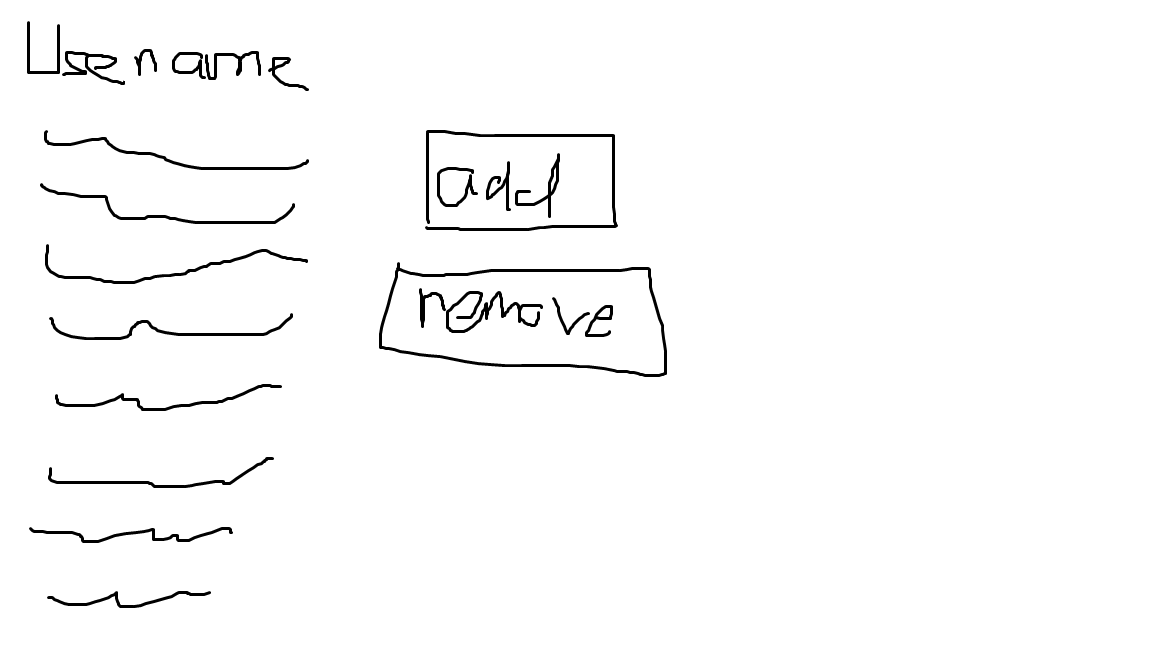 Username
add
remove